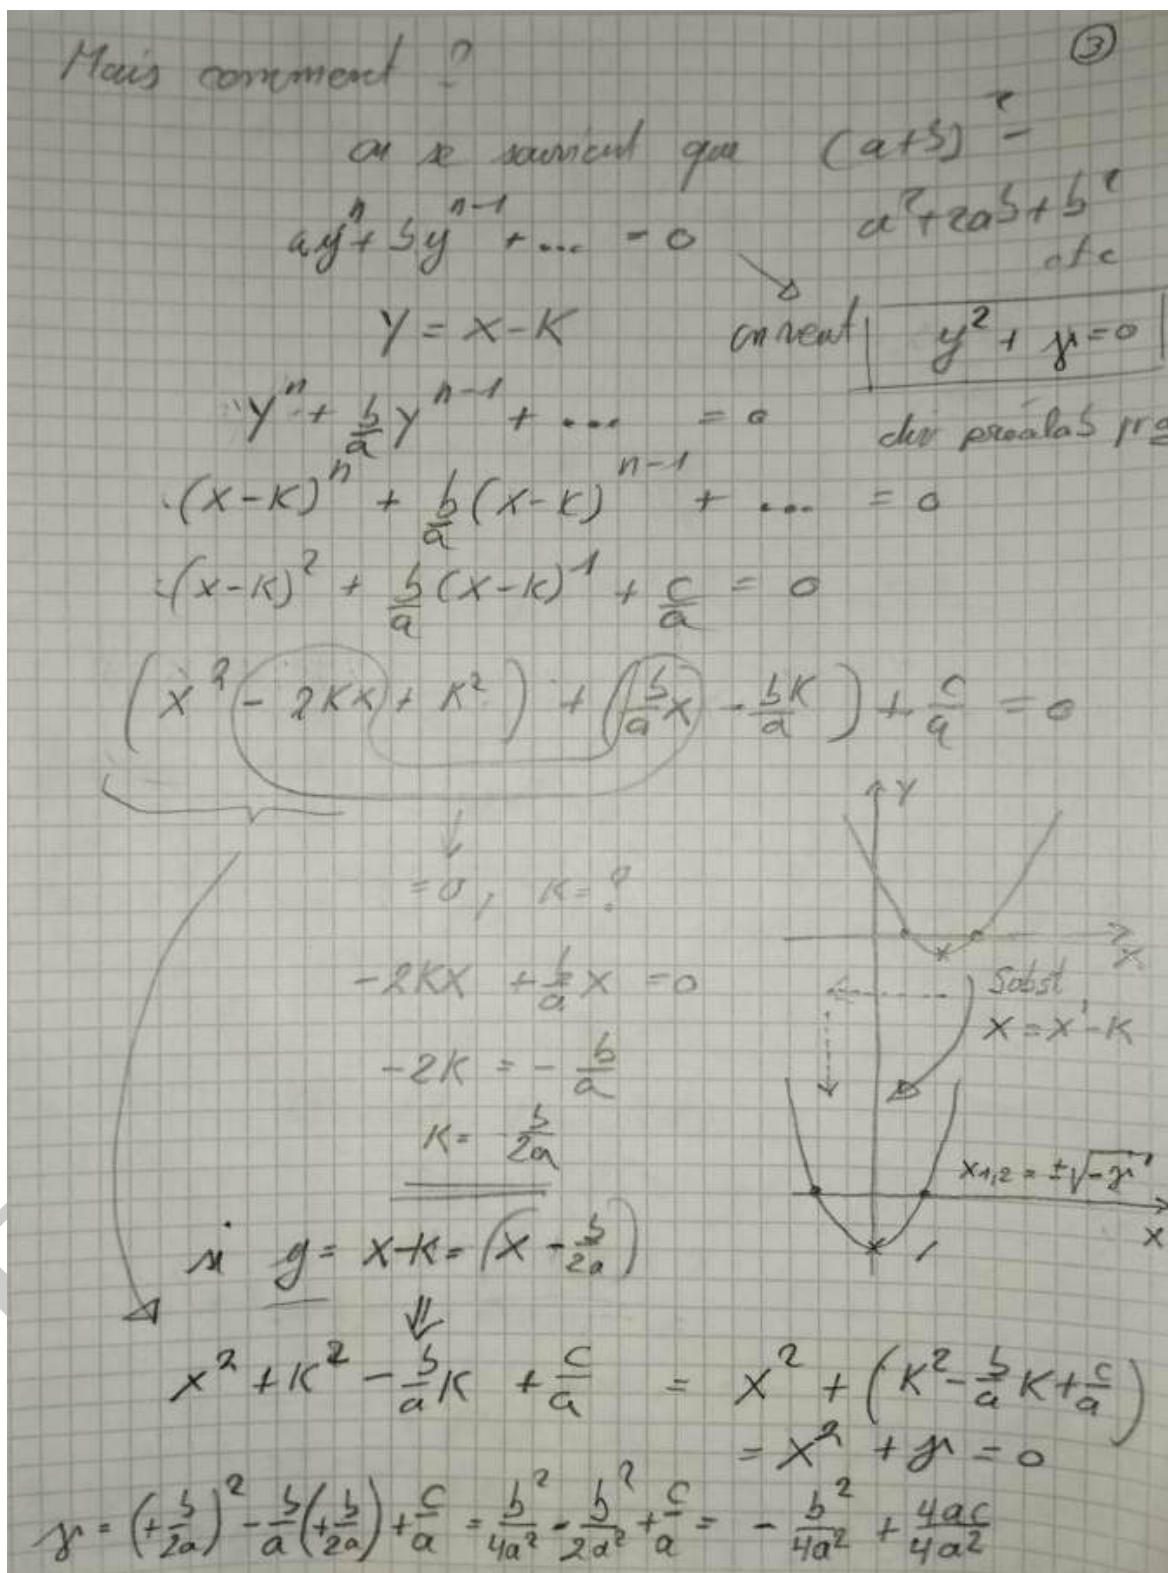 ③
Mais comment ?
on se souvient que (a+b)² =
a² + 2ab + b²
etc
ayⁿ + byⁿ⁻¹ + ... = 0
Y = X - K
on veut
y² + γ = 0
Yⁿ + b/a Yⁿ⁻¹ + ... = 0
(X-K)ⁿ + b/a (X-K)ⁿ⁻¹ + ... = 0
(X-K)² + b/a (X-K)¹ + c/a = 0
(X² - 2KX + K²) + (b/a X - bK/a) + c/a = 0
Y
= 0, K = ?
X
-2KX + b/a X = 0
Subst
X = X' - K
-2K = - b/a
K = b/2a
X₁,₂ = ±√-γ
X
si y = X-K = (X - b/2a)
⇓
X² + K² - b/a K + c/a = X² + (K² - b/a K + c/a)
= X² + γ = 0
γ = (+b/2a)² - b/a (+b/2a) + c/a = b²/4a² - b²/2a² + c/a = - b²/4a² + 4ac/4a²